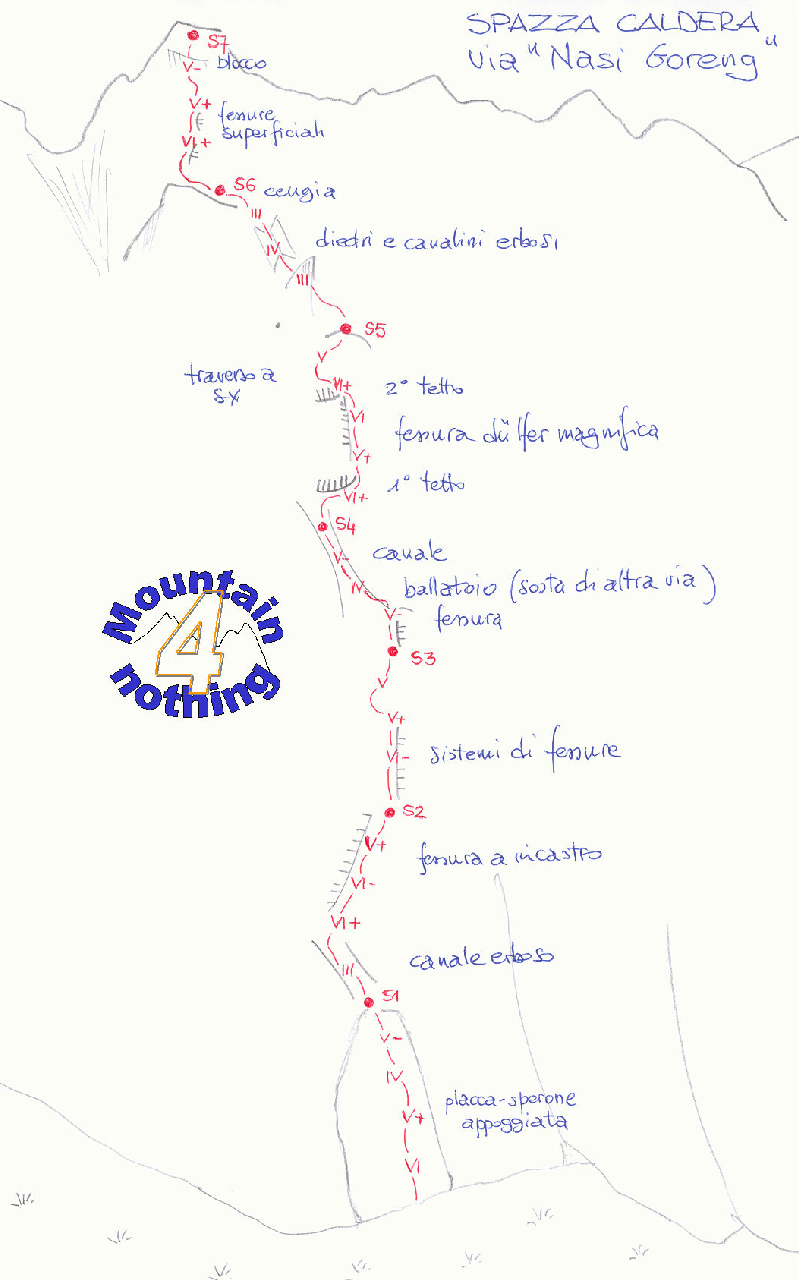 SPAZZA CALDERA
via "Nasi Goreng"
S7
blocco
V-
V+
fessure
superficiali
VI+
S6
cengia
III
diedri e canalini erbosi
IV
III
S5
V
traverso a
sx
VI+
2° tetto
VI
fessura dülfer magnifica
V+
1° tetto
VI+
S4
V-
canale
IV
ballatoio (sosta di altra via)
V-
fessura
S3
V
V+
VI-
sistemi di fessure
S2
V+
fessura a incastro
VI-
VI+
canale erboso
III
S1
V-
IV
placca-sperone
appoggiata
V+
VI
Mountain
4
nothing